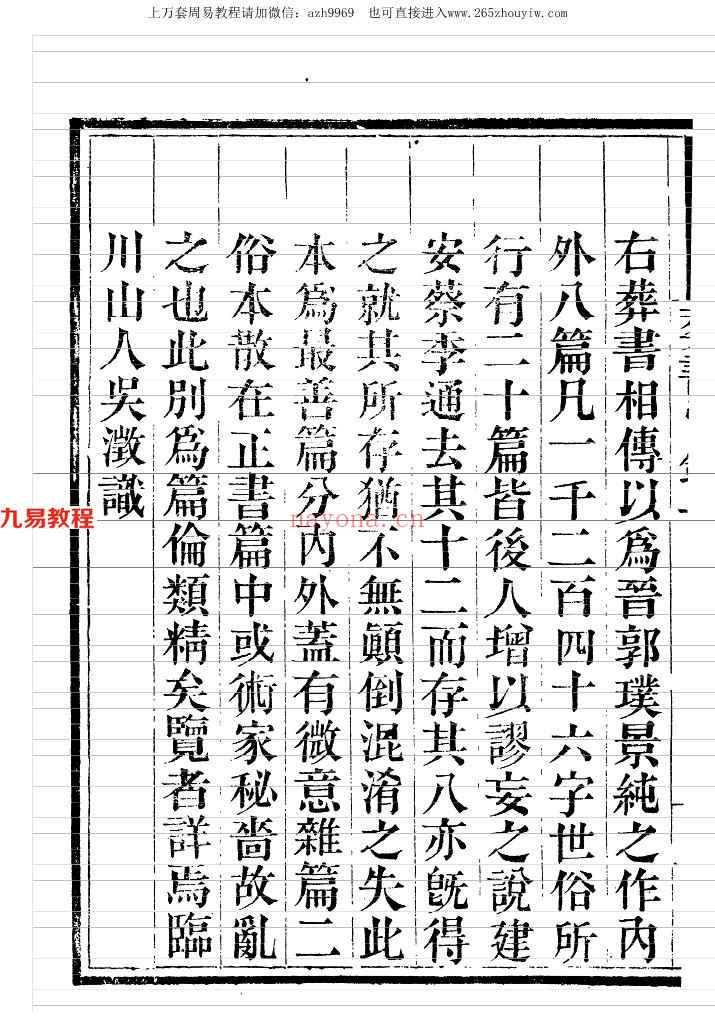 上万套周易教程请加微信：azh9969　也可直接进入www.265zhouyiw.com
右葬書相傳以爲晉郭璞景純之作內
外八篇凡一千二百四十六字世俗所
行有二十篇皆後人增以謬妄之說建
安蔡季通去其十二而存其八亦旣得
之就其所存猶不無顚倒混淆之失此
本爲最善篇分內外蓋有微意雜篇二
俗本散在正書篇中或術家秘嗇故亂
之也此別爲篇倫類精矣覽者詳焉臨
川山人吳澂識
九易教程
nayona.cn